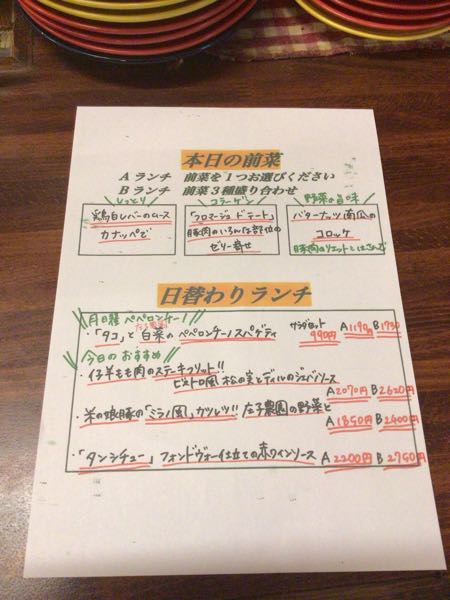 本日の前菜
Aランチ 前菜を1つお選びください
Bランチ 前菜3種盛り合わせ
しっとり
鶏白レバーのムース
カナッペで
コラーゲン
「フロマージュ ド テート」
豚肉のいろんな部位の
ゼリー寄せ
野菜の旨味
バターナッツ南瓜の
コロッケ
豚肉のリエットとはさんで
日替わりランチ
月日種 ペペロンチーノ
・「タコ」と白菜のペペロンチーノスパゲティ
サラダセット
990円
A1190円 B1730
今日のおすすめ
・仔羊もも肉のステーキフリット!!
ビストロ風 松の実とディルのジェノバソース
A2070円 B2620円
・米の娘豚の「ミラノ風」カツレツ!! 庄子農園の野菜と
A1850円 B2400円
・「タンシチュー」フォンドヴォー仕立ての赤ワインソース A2200円 B2750円